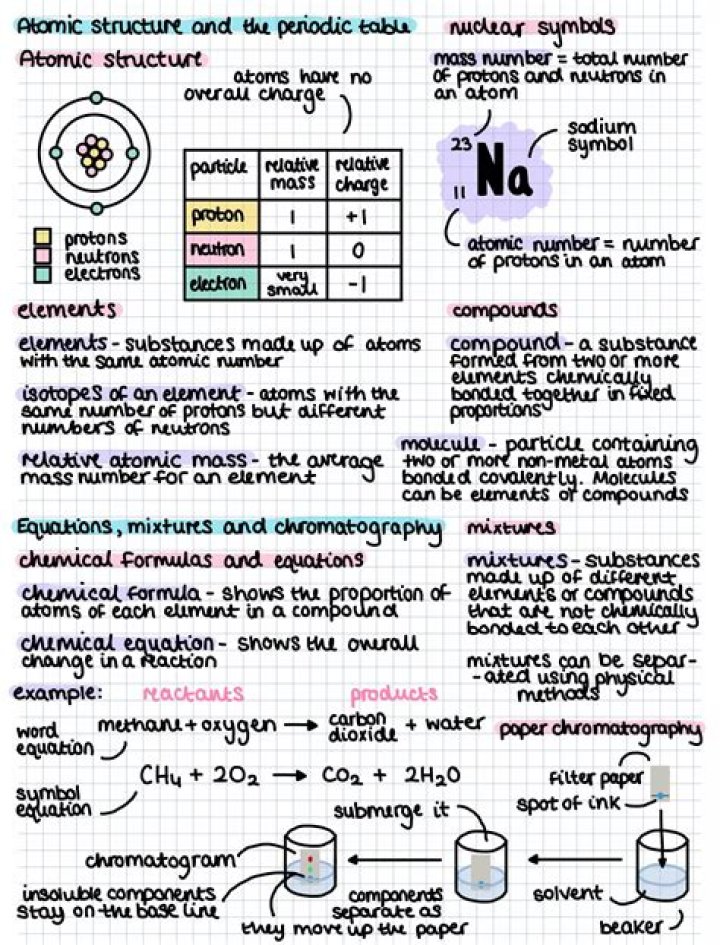 Atomic structure and the periodic table
Atomic structure
atoms have no
overall charge
protons
neutrons
electrons
particle relative mass relative charge
proton 1 +1
neutron 1 0
electron very small -1
nuclear symbols
mass number = total number
of protons and neutrons in
an atom
sodium
symbol
23
11
Na
atomic number = number
of protons in an atom
elements
elements - substances made up of atoms
with the same atomic number
isotopes of an element - atoms with the
same number of protons but different
numbers of neutrons
relative atomic mass - the average
mass number for an element
compounds
compound - a substance
formed from two or more
elements chemically
bonded together in fixed
proportions
molecule - particle containing
two or more non-metal atoms
bonded covalently. Molecules
can be elements or compounds
Equations, mixtures and chromatography
chemical formulas and equations
chemical formula - shows the proportion of
atoms of each element in a compound
chemical equation - shows the overall
change in a reaction
example: reactants products
word
equation
methane + oxygen → carbon dioxide + water
symbol
equation
CH4 + 2O2 → CO2 + 2H2O
mixtures
mixtures - substances
made up of different
elements or compounds
that are not chemically
bonded to each other
mixtures can be separ-
-ated using physical
methods
paper chromatography
filter paper
spot of ink
submerge it
chromatogram
insoluble components
stay on the base line
components
separate as
they move up the paper
solvent
beaker